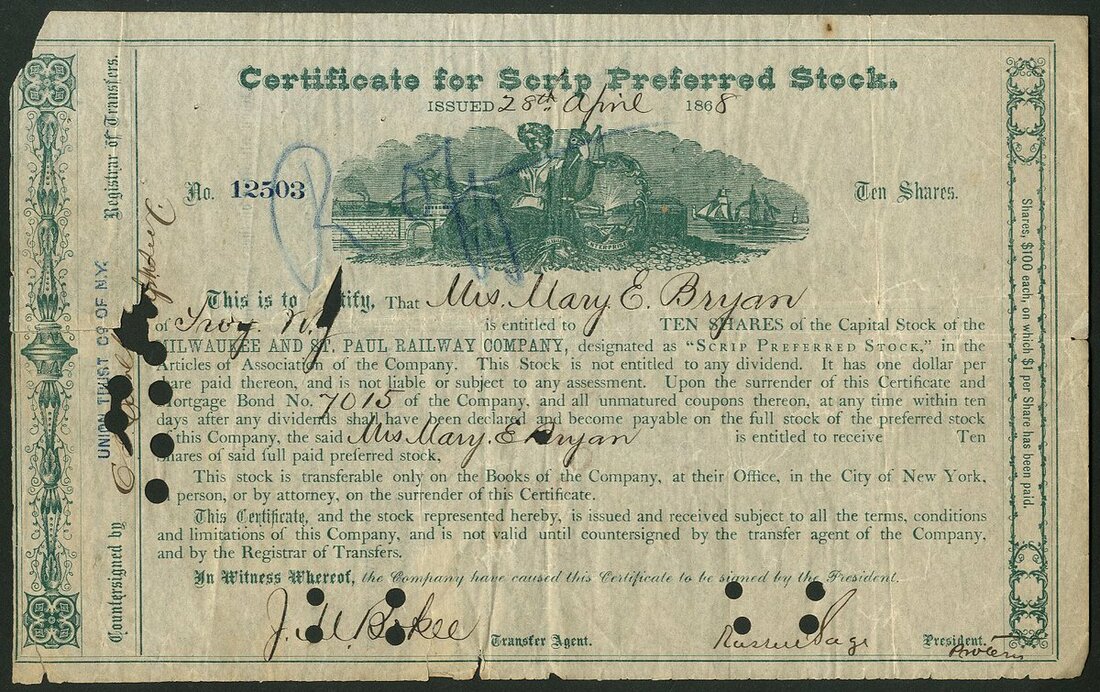 Certificate for Scrip Preferred Stock.
ISSUED 28th April 1868
No. 12503
Ten Shares.
R
ENTERPRISE
This is to tify, That Mrs. Mary E. Bryan
of Troy N.Y is entitled to TEN SHARES of the Capital Stock of the
MILWAUKEE AND ST. PAUL RAILWAY COMPANY, designated as "SCRIP PREFERRED STOCK," in the
Articles of Association of the Company. This Stock is not entitled to any dividend. It has one dollar per
are paid thereon, and is not liable or subject to any assessment. Upon the surrender of this Certificate and
ortgage Bond No. 7015 of the Company, and all unmatured coupons thereon, at any time within ten
days after any dividends shall have been declared and become payable on the full stock of the preferred stock
this Company, the said Mrs. Mary. E Bryan is entitled to receive Ten
Shares of said full paid preferred stock.
This stock is transferable only on the Books of the Company, at their Office, in the City of New York,
person, or by attorney, on the surrender of this Certificate.
This Certificate, and the stock represented hereby, is issued and received subject to all the terms, conditions
and limitations of this Company, and is not valid until countersigned by the transfer agent of the Company,
and by the Registrar of Transfers.
In Witness Whereof, the Company have caused this Certificate to be signed by the President.
Transfer Agent.
Russell Sage President.
Protem
Countersigned by Registrar of Transfers.
UNION TRUST CO OF N.Y.
Shares, $100 each, on which $1 per Share has been paid.